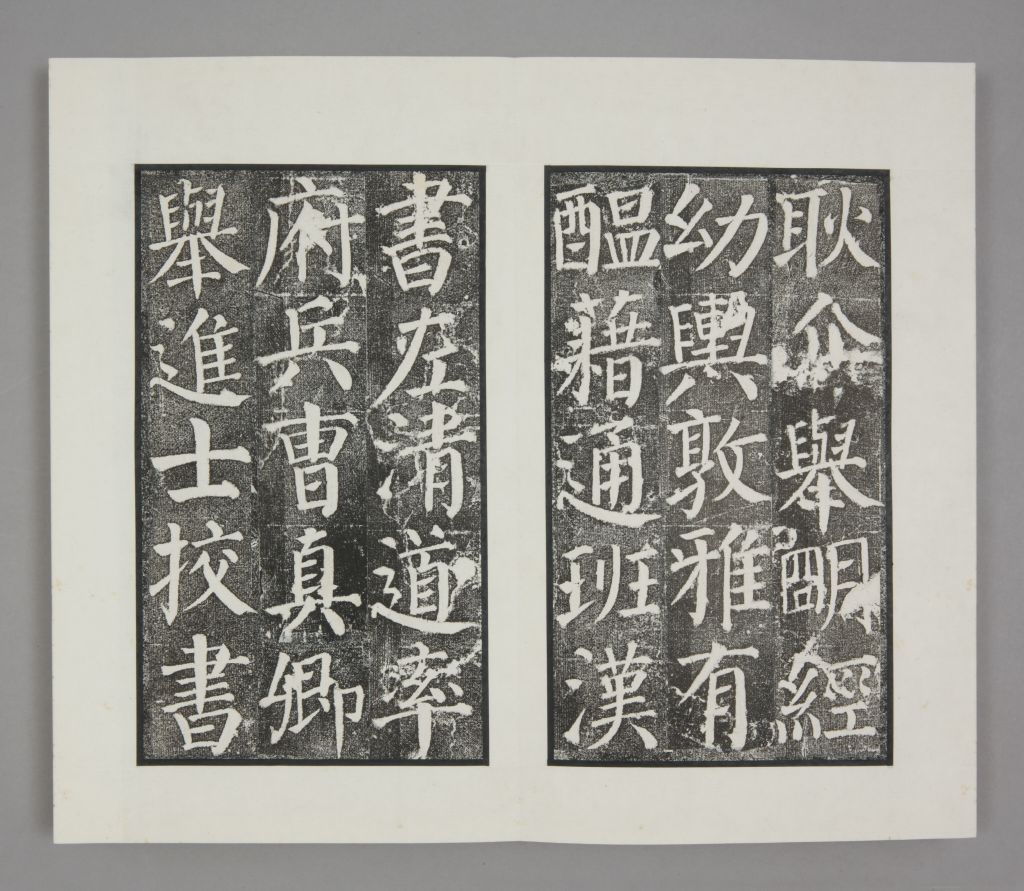 耿介舉朙經
幼輿敦雅有
醞藉通班漢
書左清道率
府兵曹真卿
舉進士挍書